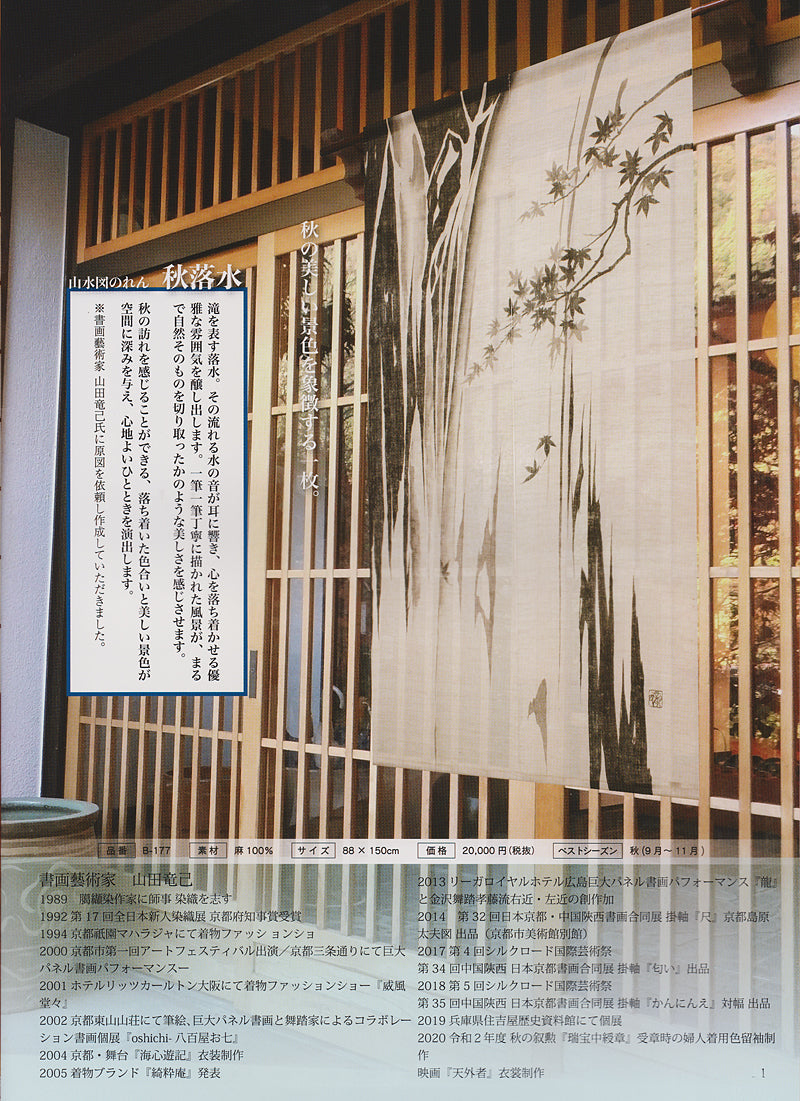 山水図のれん 秋落水
秋の美しい景色を象徴する一枚。
滝を表す落水。その流れる水の音が耳に響き、心を落ち着かせる優
雅な雰囲気を醸し出します。一筆一筆丁寧に描かれた風景が、まる
で自然そのものを切り取ったかのような美しさを感じさせます。
秋の訪れを感じることができる、落ち着いた色合いと美しい景色が
空間に深みを与え、心地よいひとときを演出します。
※書画藝術家 山田竜己氏に原図を依頼し作成していただきました。
品番 B-177 素材 麻100% サイズ 88×150cm 価格 20,000円(税抜) ベストシーズン 秋(9月〜11月)
書画藝術家 山田竜己
1989 臈纈染作家に師事 染織を志す
1992 第17回全日本新人染織展 京都府知事賞受賞
1994 京都祇園マハラジャにて着物ファッションショ
2000 京都市第一回アートフェスティバル出演／京都三条通りにて巨大
パネル書画パフォーマンスー
2001 ホテルリッツカールトン大阪にて着物ファッションショー『威風
堂々』
2002 京都東山山荘にて筆絵、巨大パネル書画と舞踏家によるコラボレー
ション書画個展『oshichi- 八百屋お七』
2004 京都・舞台『海心遊記』衣装制作
2005 着物ブランド『綺粋庵』発表
2013 リーガロイヤルホテル広島巨大パネル書画パフォーマンス『龍』
と金沢舞踏孝藤流右近・左近の創作加
2014 第32回日本京都・中国陜西書画合同展 掛軸『尺』京都島原
太夫図 出品（京都市美術館別館）
2017 第4回シルクロード国際芸術祭
第34回中国陜西 日本京都書画合同展 掛軸『匂い』出品
2018 第5回シルクロード国際芸術祭
第35回中国陜西 日本京都書画合同展 掛軸『かんにんえ』対幅 出品
2019 兵庫県住吉屋歴史資料館にて個展
2020 令和2年度 秋の叙勲『瑞宝中綬章』受章時の婦人着用色留袖制
作
映画『天外者』衣裳制作
1